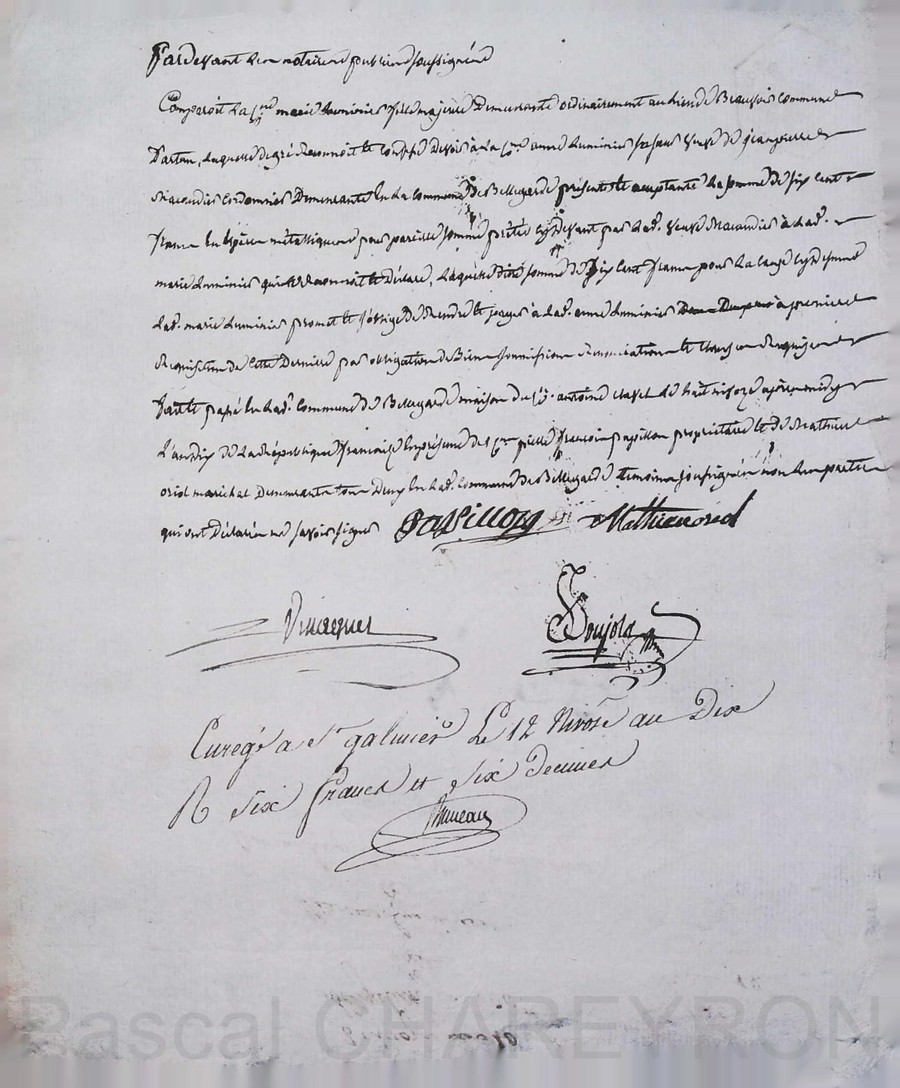 Pardevant les notaires publics soussignés
Comparoit la c.ne marie Luminier fille majeure Demeurante ordinairement au lieu de Beauvoir commune
D'artun, laquelle de gré Reconnoit et Confesse Devoir à la c.ne anne Luminier sa sœur veuve de jean pierre
Cordonnier Demeurante en la commune de Bellegarde présente et acceptante la somme de six cent
francs en espèces métalliques pour pareille somme prêtée cydevant par lad. veuve à lad.
marie Luminier qui le Reconnoit et Déclare, laquelle dite somme de six cent francs pour la cause cydessus
lad. marie Luminier promet et s'oblige de Rendre et payer à lad. anne Luminier à premiere
Requisition de cette Derniere par obligation de Biens soumissions Renonciations et clauses Requises
fait et passé en lad. Commune de Bellegarde maison du c.n antoine clavel le huit nivoze après midy
L'an dix de la République française en présence des c.ens pierre françois papillon propriétaire et de Mathieu
oriol marechal Demeurants tous Deux en lad. commune de Bellegarde temoins soussignés non les parties
qui ont Déclaré ne savoir signer Papillon Mathieu oriol
Poujola
Enregé a St galmier Le 12 Nivose an Dix
R six francs et six Decimes
Bruneau
Pascal CHAREYRON